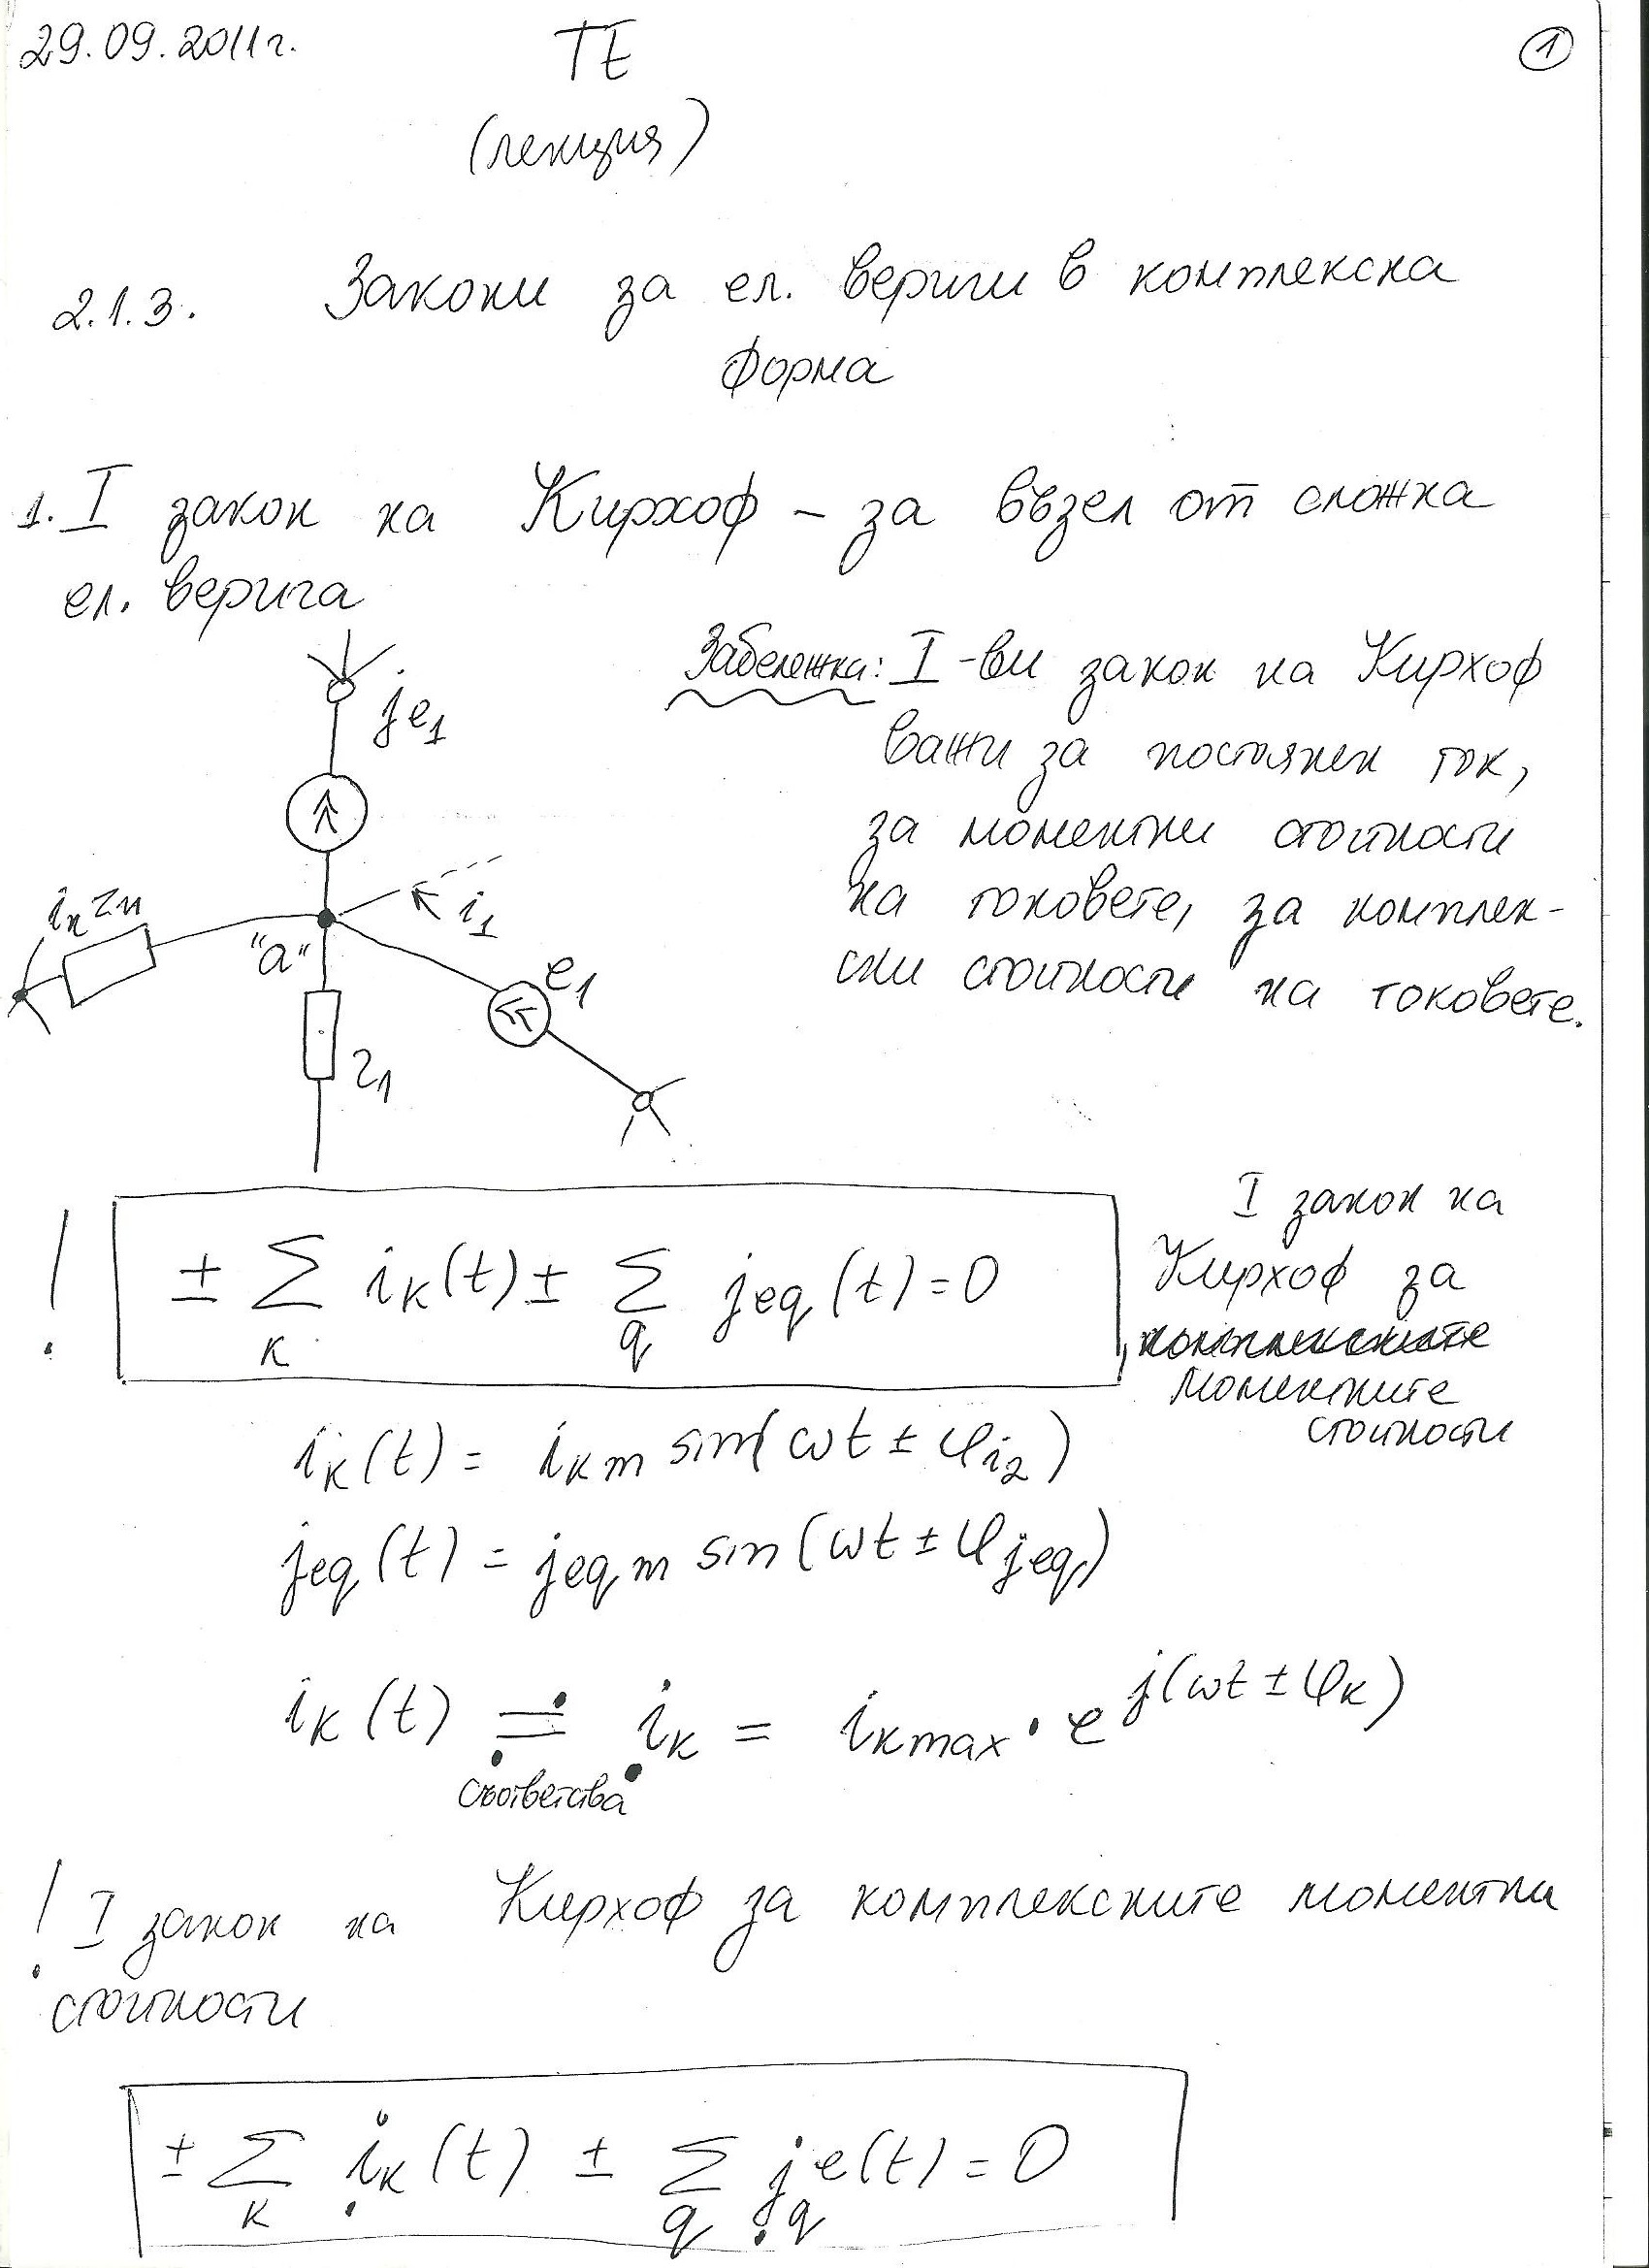 29.09.2011г.
ТЕ
①
(лекция)
2.1.3. Закони за ел. вериги в комплексна
форма
1. I закон на Кирхоф – за възел от сложна
ел. верига
Забележка: I-ви закон на Кирхоф
важи за постоянен ток,
за моментни стойности
на токовете, за комплек-
сни стойности на токовете.
je₁
"a"
i₁
e₁
r₁
! ± Σ iк(t) ± Σ jeq(t) = 0
к q
I закон на
Кирхоф за
комплексните
моментните
стойности
iк(t) = iкm sin(ωt ± φi₂)
jeq(t) = jeqm sin(ωt ± φjeq)
iк(t) ≓ iк = iкmax · e^j(ωt ± φк)
съответства
! I закон на Кирхоф за комплексните моментни
стойности
± Σ iк(t) ± Σ je(t) = 0
к q q